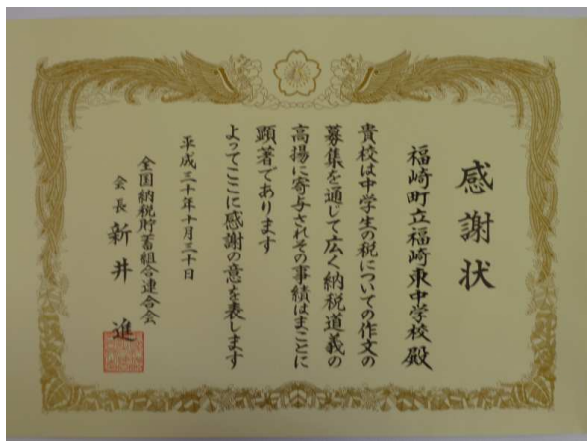 感謝状
福崎町立福崎東中学校殿
貴校は中学生の税についての作文の
募集を通じて広く納税道義の
高揚に寄与されその事績はまことに
顕著であります
よってここに感謝の意を表します
平成三十年十月三十日
全国納税貯蓄組合連合会
会長 新井 進